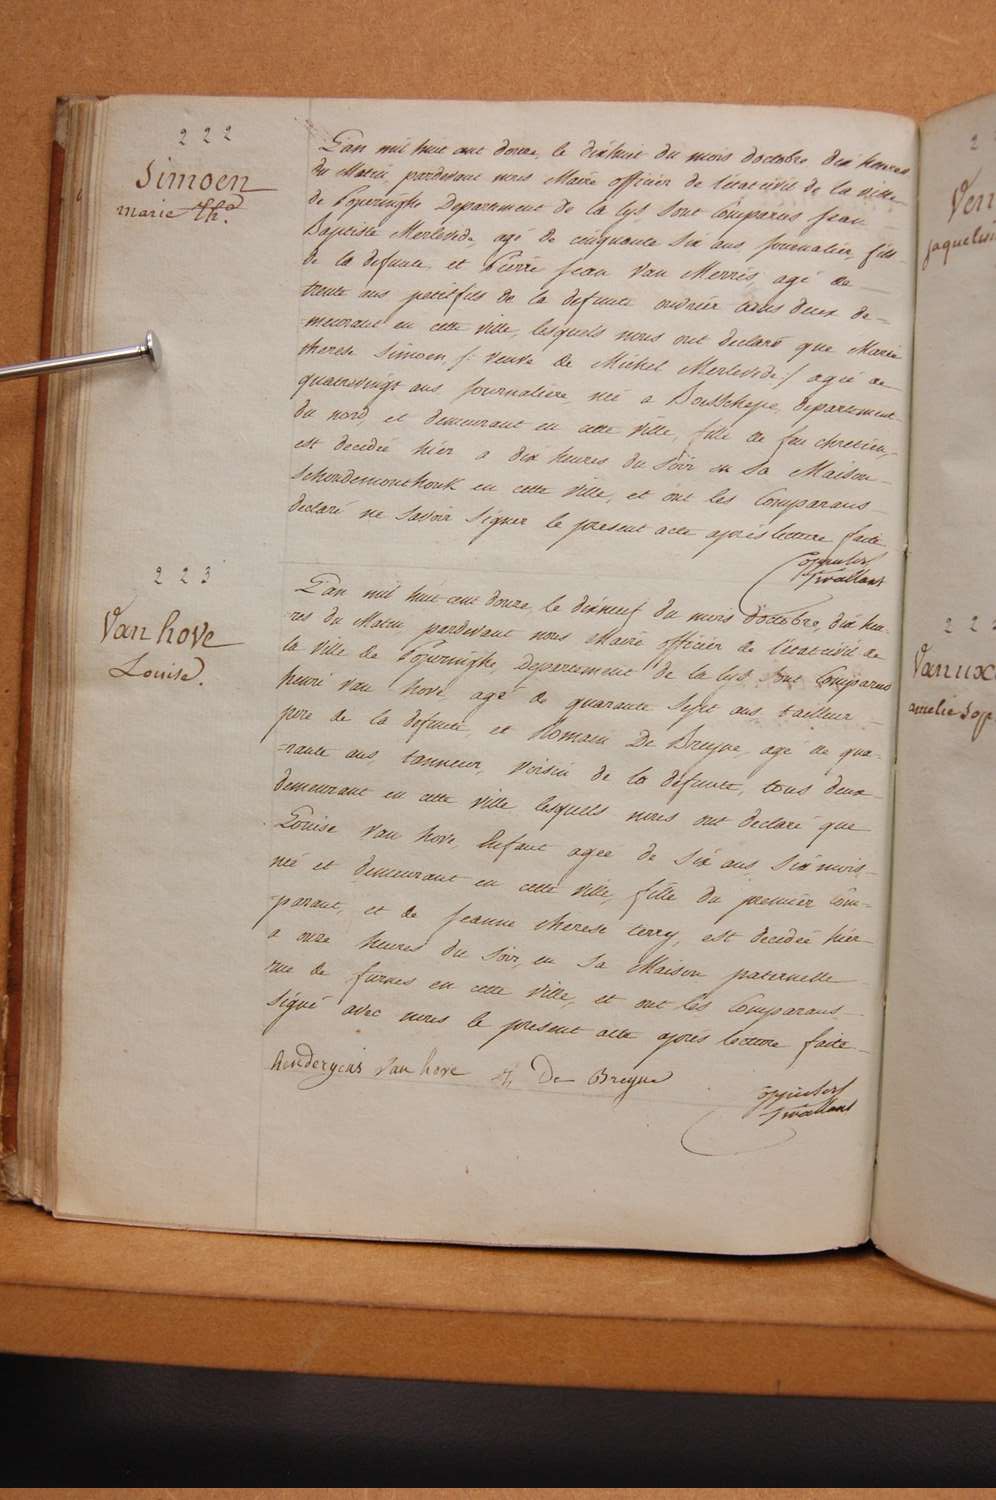 2 2 2
Simoen
marie Th.ᵃ
L'an mil huit cent douze, le dixhuit du mois d'octobre dix heures
du Matin, pardevant nous Maire officier de l'état civil de la ville
de Poperinghe Departement de la Lys sont Comparus Jean
Baptiste Merlevede, agé de cinquante six ans journalier, fils
de la defunte, et Pierre Jean Van Merris, agé de
trente ans petitfils de la defunte ouvrier tous deux de-
-meurant en cette ville, lesquels nous ont declaré que Marie
therese Simoen /: veuve de Michel Merlevede :/ agée de
quatrevingt ans, journalière, née a Boesschepe, departement
du nord, et demeurant en cette ville, fille de feu chretien,
est decedée hier a dix heures du soir en sa Maison
Schoudemonthouk en cette ville, et ont les Comparans
declaré ne savoir signer le present acte après lecture faite
2 2 3
Van hove
Louise.
L'an mil huit cent douze, le dixneuf du mois d'octobre, dix heu-
-res du Matin, pardevant nous Maire officier de l'état civil de
la ville de Poperinghe, departement de la Lys sont Comparus
henri Van hove agé de quarante sept ans tailleur
pere de la defunte, et Romain De Breyne, agé de qua-
-rante ans, tanneur, voisin de la defunte, tous deux
demeurant en cette ville lesquels nous ont declaré que
Louise Van hove, Enfant agée de six ans, six mois,
née et demeurant en cette ville, fille du premier Com-
-parant, et de Jeanne therese terry, est decedée hier
a onze heures du soir, en sa Maison paternelle
rue de furnes en cette ville, et ont les Comparans
signé avec nous le present acte après lecture faite
Van hove De Breyne
2
Ven
2 2
Vanuxe
amelie sop